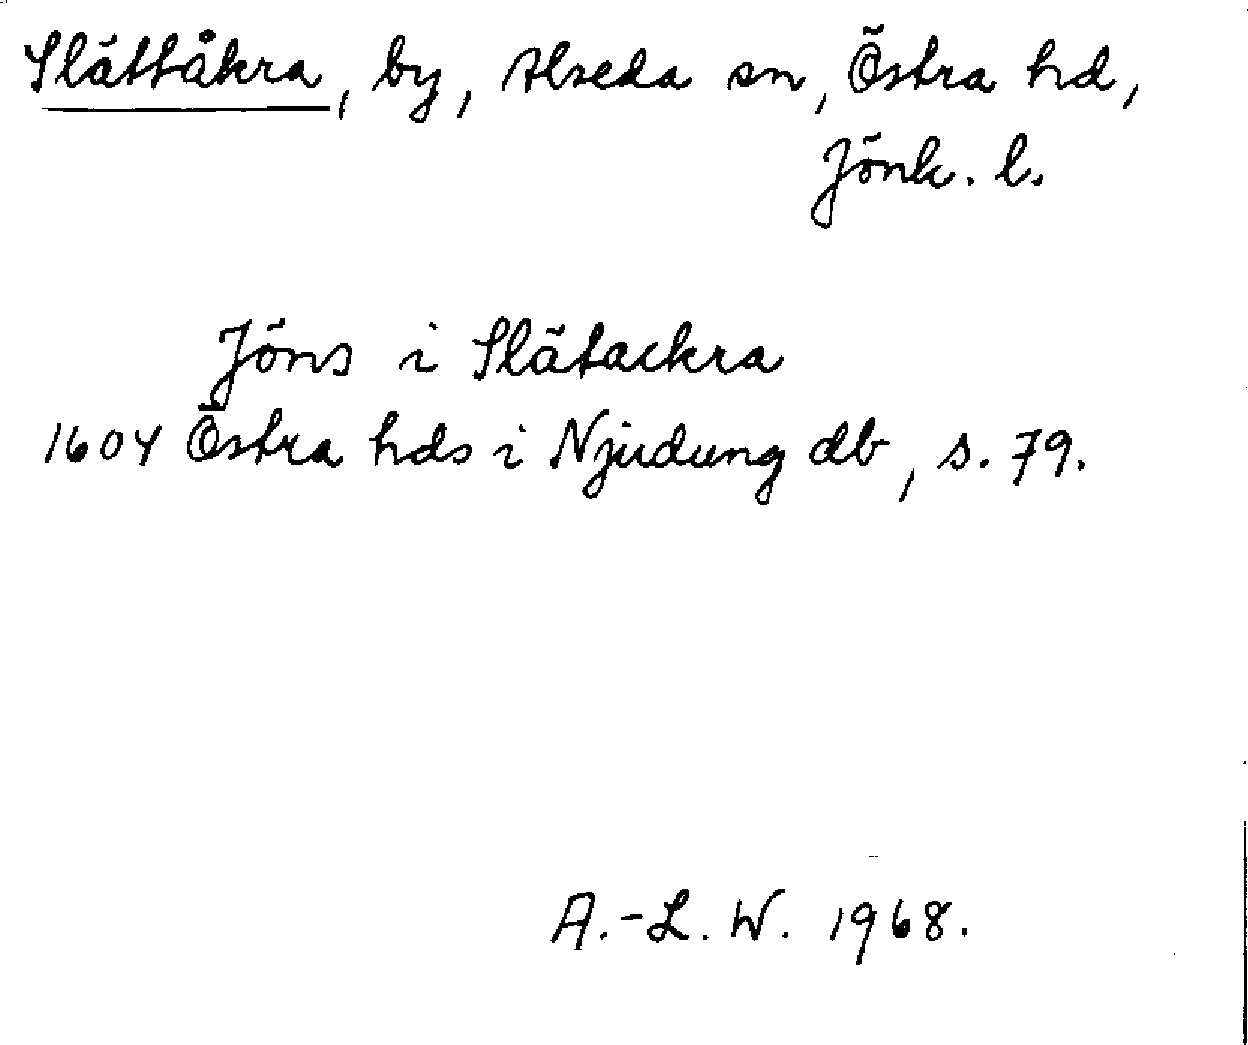 Slättåkra, by, Alseda sn, Östra hd,
Jönk. l.
Jöns i Slätackra
1604 Östra hds i Njudung db, s. 79.
A.-L. W. 1968.